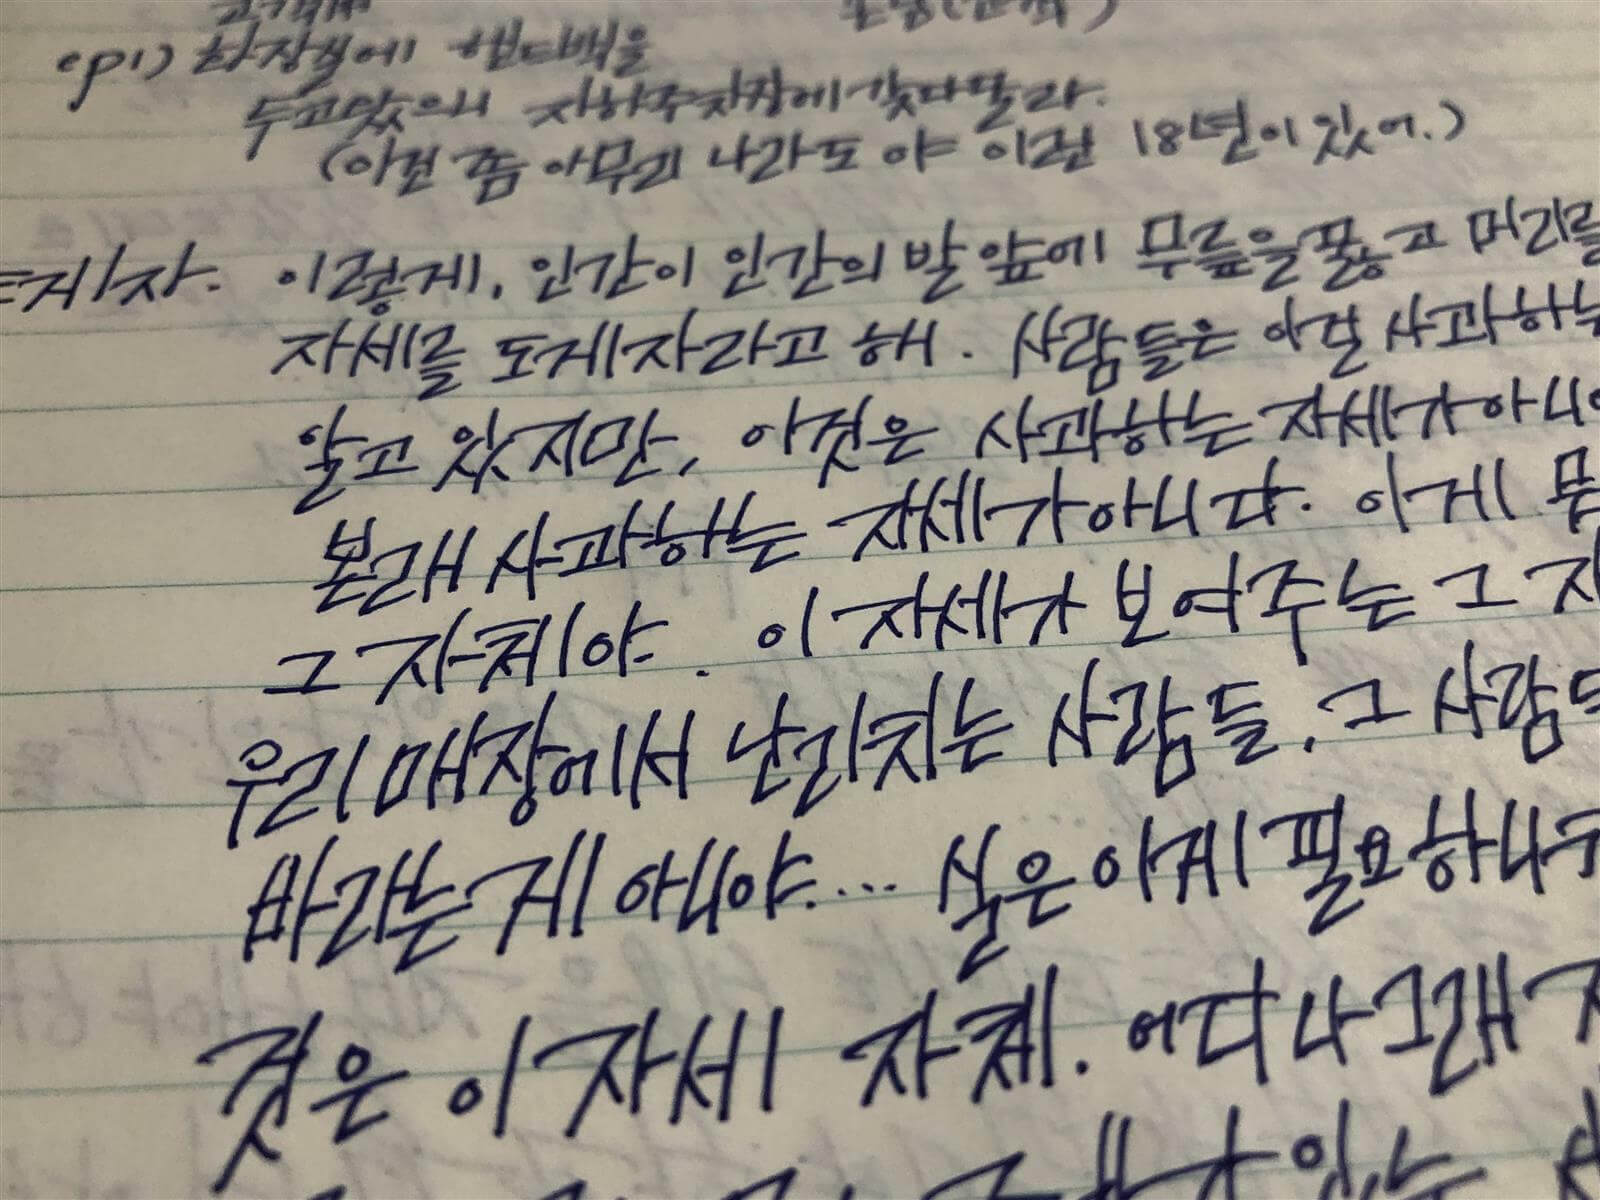 고객
ep1) 화장실에 핸드백을
두고왔으니 지하주차장에 갖다달라.
(이건 쫌 아무리 나라도 야 이런 18년이 있어.)
게자. 이렇게, 인간이 인간의 발 앞에 무릎을 꿇고 머리를
자세를 도게자라고 해. 사람들은 이걸 사과하는
알고 있지만, 이것은 사과하는 자세가 아니야
본래 사과하는 자세가 아니다. 이게
그 자체야. 이 자세가 보여주는 그
우리 매장에서 난리치는 사람들, 그 사람
바라는 게 아니야.... 실은 이게 필요하니
것은 이 자세 자체. 어디나 그래
있는